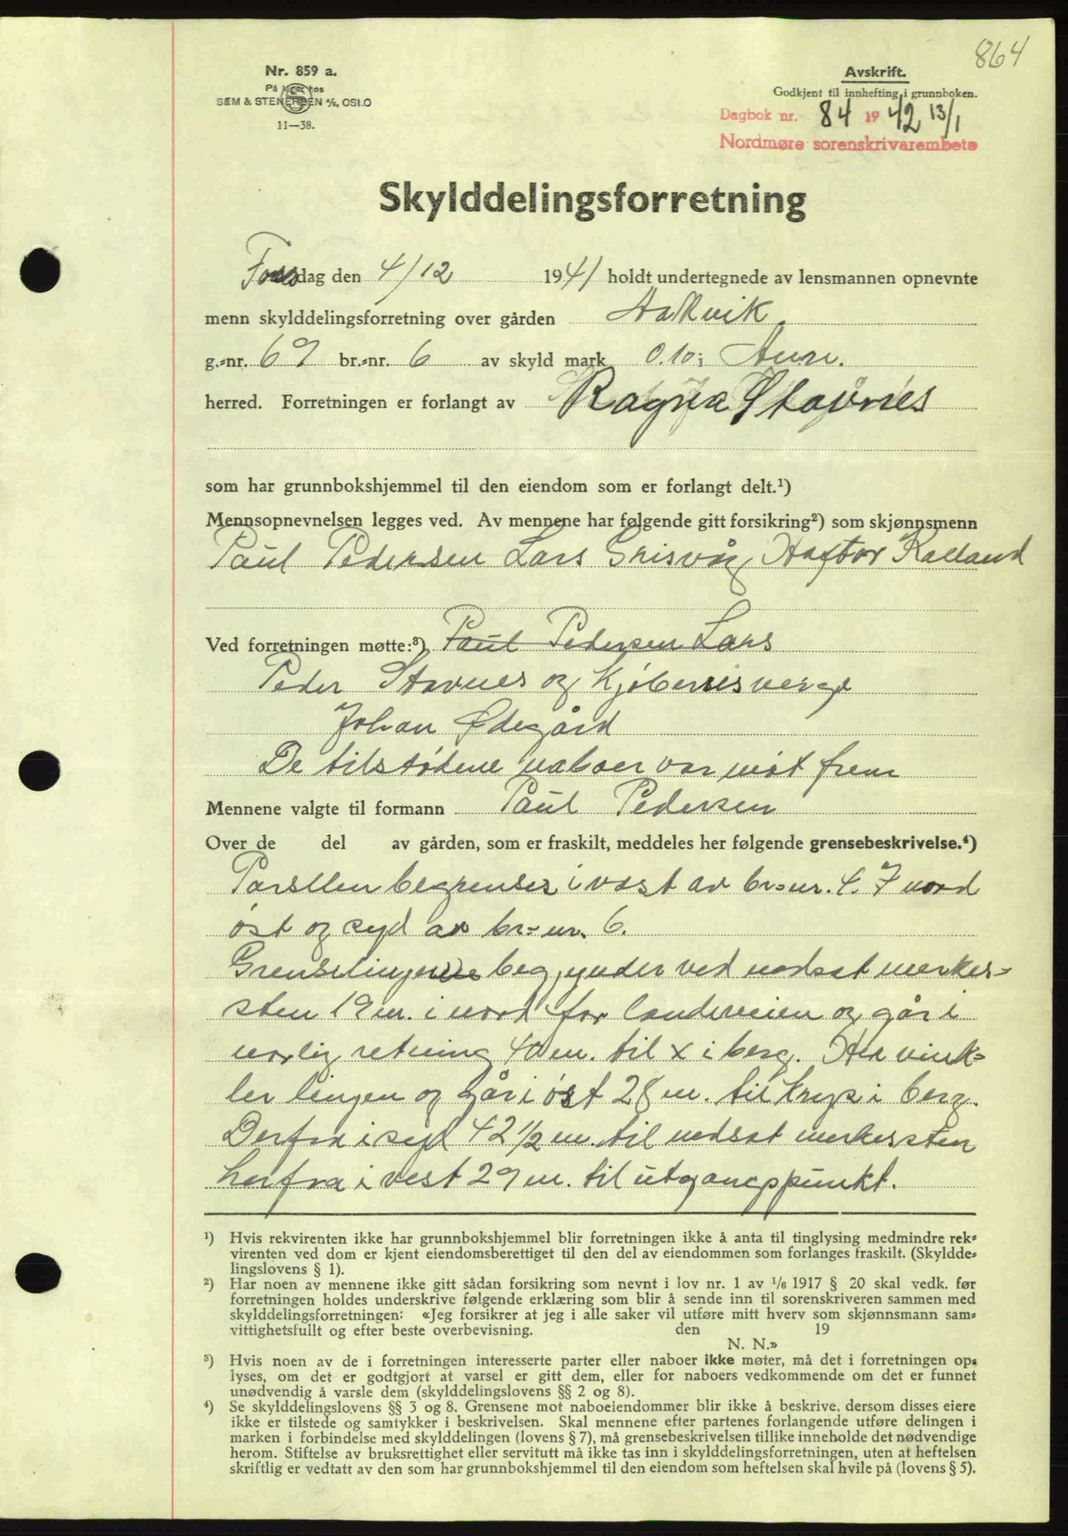 864
Nr. 859 a.
På lager hos
SEM & STENERSEN A/S, OSLO
11—38.
Avskrift.
Godkjent til innhefting i grunnboken.
Dagbok nr. 84 1942 13/1
Nordmøre sorenskrivarembete
Skylddelingsforretning
Torsdag den 4/12 1941 holdt undertegnede av lensmannen opnevnte
menn skylddelingsforretning over gården
g.-nr. 69 br.-nr. 6 av skyld mark 0.10 i Aure.
herred. Forretningen er forlangt av Ragna Stavnes
som har grunnbokshjemmel til den eiendom som er forlangt delt.¹)
Mennsopnevnelsen legges ved. Av mennene har følgende gitt forsikring²) som skjønnsmenn
Paul Pedersen Lars Grisvåg Haftor Kalland
Ved forretningen møtte:³) Paul Pedersen Lars
Peder Stavnes og Kjøberens verge
Johan Ødegård
De tilstødene naboer var møt frem
Mennene valgte til formann Paul Pedersen
Over de del av gården, som er fraskilt, meddeles her følgende grensebeskrivelse.⁴)
Parsllen begrenses i vest av br.nr. 4. 7 nord
øst og syd av br.-nr. 6.
Grenselinjene begynder ved nedsat merkes-
sten 19 m. i nord for landeveien og går i
norlig retning 40 m. til x i berg. Her vink-
ler linjen og går i øst 28 m. til kryss i berg.
Derfra i syd 42 1/2 m. til nedsat merkessten
herfra i vest 29 m. til utgangspunkt.
¹) Hvis rekvirenten ikke har grunnbokshjemmel blir forretningen ikke å anta til tinglysing medmindre rek-
virenten ved dom er kjent eiendomsberettiget til den del av eiendommen som forlanges fraskilt. (Skyldde-
lingslovens § 1).
²) Har noen av mennene ikke gitt sådan forsikring som nevnt i lov nr. 1 av 1/6 1917 § 20 skal vedk. før
forretningen holdes underskrive følgende erklæring som blir å sende inn til sorenskriveren sammen med
skylddelingsforretningen: «Jeg forsikrer at jeg i alle saker vil utføre mitt hverv som skjønnsmann sam-
vittighetsfullt og efter beste overbevisning. den 19
N. N.»
³) Hvis noen av de i forretningen interesserte parter eller naboer ikke møter, må det i forretningen op-
lyses, om det er godtgjort at varsel er gitt dem, eller for naboers vedkommende om det er funnet
unødvendig å varsle dem (skylddelingslovens §§ 2 og 8).
⁴) Se skylddelingslovens §§ 3 og 8. Grensene mot naboeiendommer blir ikke å beskrive, dersom disses eiere
ikke er tilstede og samtykker i beskrivelsen. Skal mennene efter partenes forlangende utføre delingen i
marken i forbindelse med skylddelingen (lovens § 7), må grensebeskrivelsen tillike inneholde det nødvendige
herom. Stiftelse av bruksrettighet eller servitutt må ikke tas inn i skylddelingsforretningen, uten at heftelsen
skriftlig er vedtatt av den som har grunnbokshjemmel til den eiendom som heftelsen skal hvile på (lovens § 5).